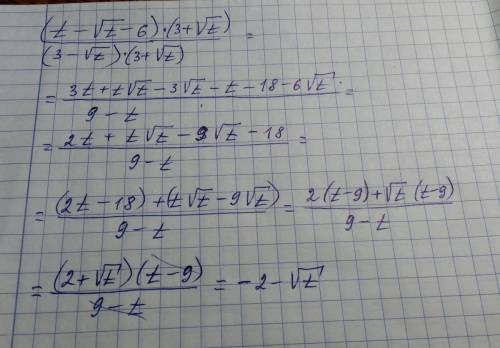 (t - √t - 6) · (3 + √t) / (3 - √t) · (3 + √t) =
= 3t + t√t - 3√t - t - 18 - 6√t / 9 - t =
= 2t + t√t - 9√t - 18 / 9 - t =
= (2t - 18) + (t√t - 9√t) / 9 - t = 2(t - 9) + √t (t - 9) / 9 - t
= (2 + √t)(t - 9) / 9 - t = -2 - √t